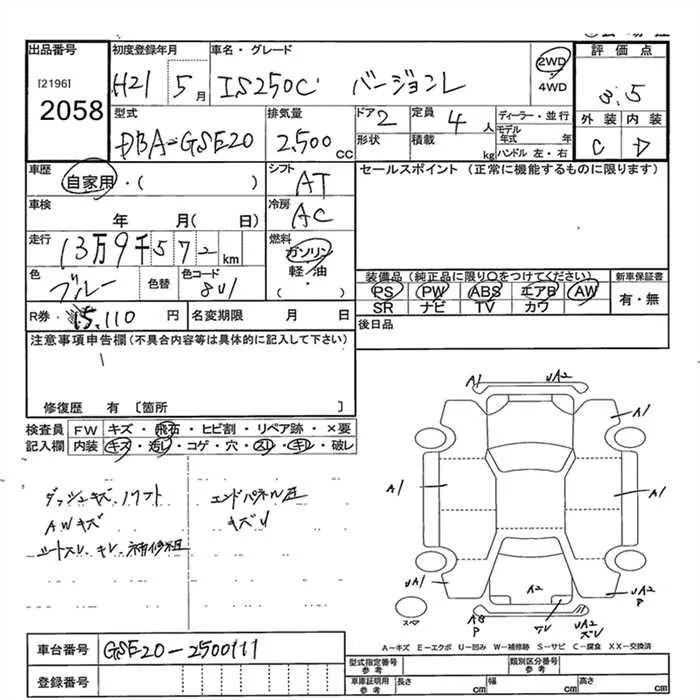 出品番号 初度登録年月 車名・グレード 評価点
[2196] 2058
H21 5月 IS250C バージョンL 2WD・4WD 3.5
外装 内装
C D
型式 排気量 ドア 2 定員 4人 ディーラー・並行
DBA-GSE20 2,500CC 形状 積載 kg モデル年式 年 ハンドル 左・右
車歴 自家用・( ) シフト AT セールスポイント (正常に機能するものに限ります)
車検 年 月( 日) 冷房 AC
走行 13万9千572km 燃料 ガソリン 軽・油・( )
色 ブルー 色替 色コード 8U1
装備品 (純正品に限り○をつけてください) 新車保証書
PS PW ABS エアB AW 有・無
SR ナビ TV カワ
R券・15,110円 名変期限 月 日 後日品
注意事項申告欄(不具合内容等は具体的に記入して下さい)
修復歴 有 〔箇所 〕
検査員 FW キズ・飛石・ヒビ割・リペア跡・×要
記入欄 内装 キズ・汚レ・コゲ・穴・スレ・キレ・破レ
ダッシュキズ、ソフト
AWキズ
シートスレ、キレ、補修粗
エンドパネル歪
キズU
A1 UA2
A1
A1 A1
UA1 A2 UA2 P
スペア AB P UA2
A-キズ E-エクボ U-凹み W-補修跡 S-サビ C-腐食 XX-交換済
車台番号 GSE20-2500111
登録番号
型式指定番号 参考 類別区分番号 参考
車車証明用 参考 長さ cm 幅 cm 高さ cm